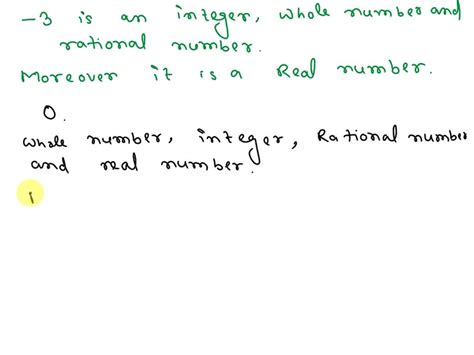 -3 is an integer, whole number and
rational number.
Moreover it is a Real number.
0.
whole number, integer, Rational number
and real number.